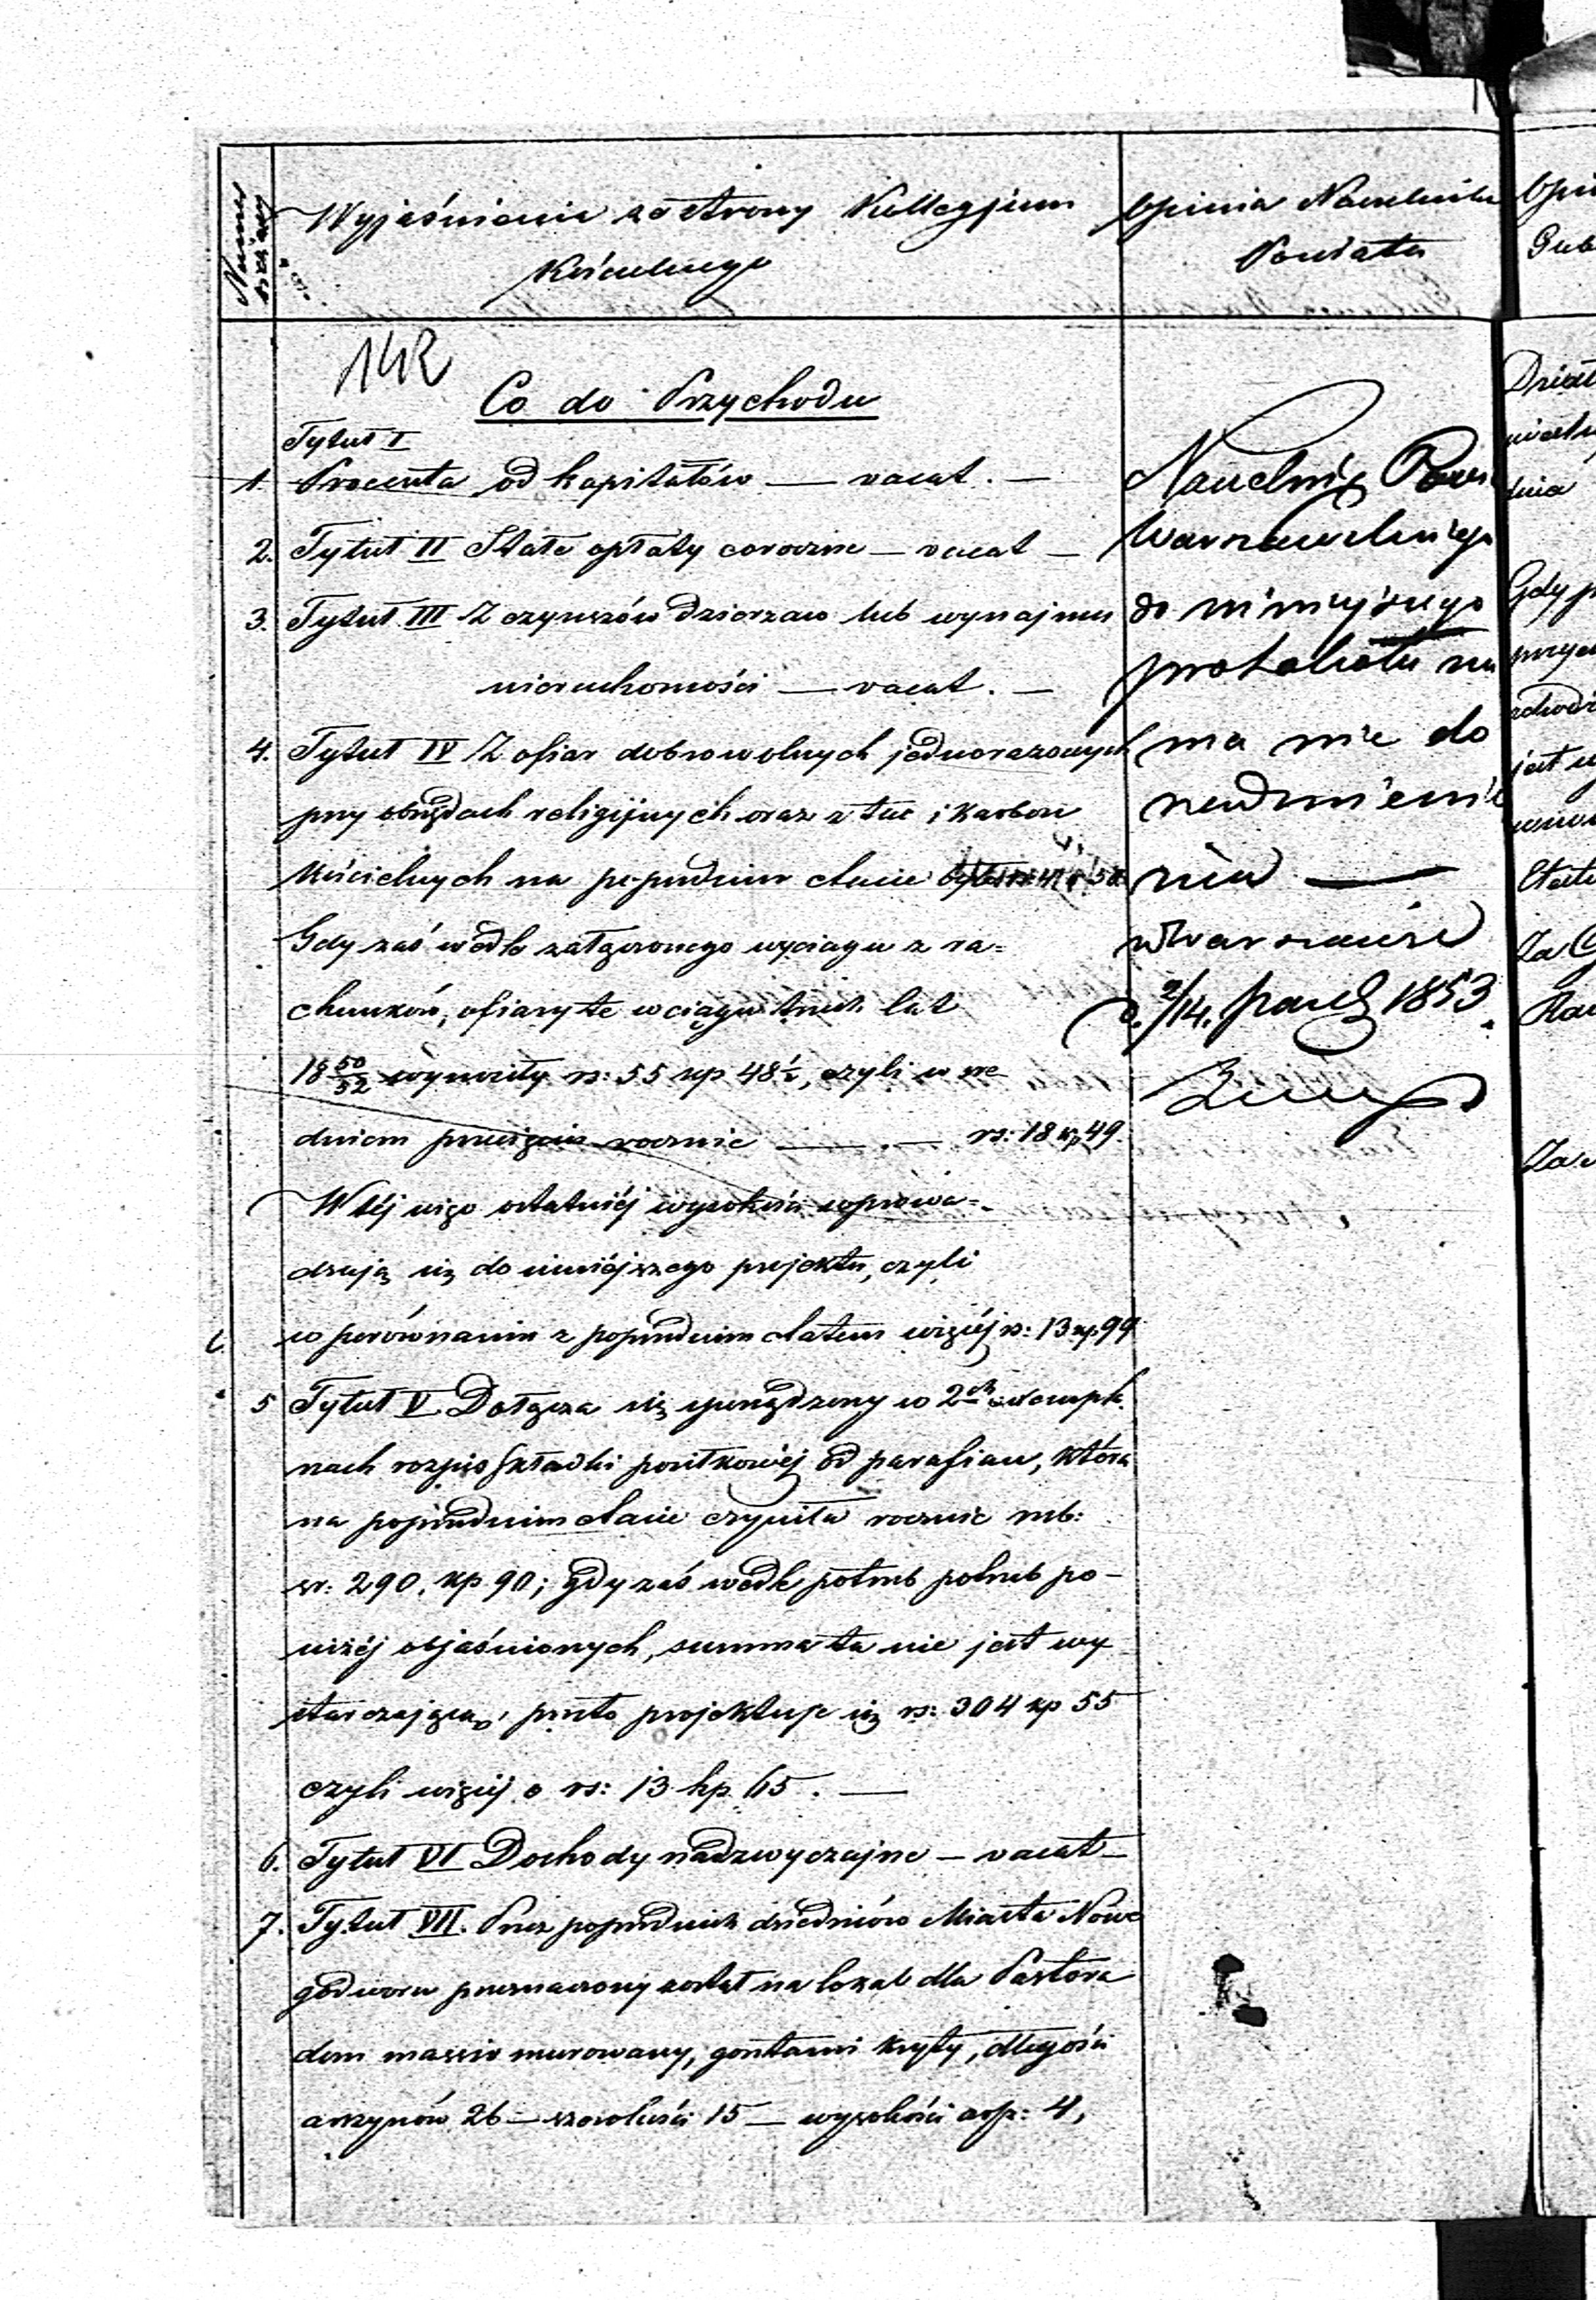 Numer
Wyjaśnienie ze strony Kollegjum
Kościelnego
Opinia Naczelnika
Powiatu
142
Co do Przychodu
Tytuł I
1. Procenta od kapitałów — vacat. —
2. Tytuł II Stałe opłaty coroczne — vacat —
3. Tytuł III Z czynszów dzierzaw lub wynajmu
nieruchomości — vacat. —
4. Tytuł IV Z ofiar dobrowolnych jednorazowych
przy obrzędach religijnych oraz z tac i karbon
kościelnych na poprzednim etacie
Gdy zaś wedle załączonego wyciągu z ra=
chunków, ofiary te w ciągu trzech lat
18 50/52 wynosiły rs: 55 kp 48½, czyli w śre
dniem przecięciu rocznie — . — rs: 18 kp 49.
W tej więc ostatniéj wysokości wprowa=
dzają się do niniéjszego projektu, czyli
w porównaniu z poprzednim etatem więcéj rs: 13 kp. 99
5 Tytuł V Dołącza się sporządzony w 2ch exemplź
nach rozpis składki posiłkowéj od parafian, która
na poprzednim etacie czyniła rocznie rub:
sr: 290. kp 90; gdy zaś wedle potrzeb potrzeb po-
niżéj objaśnionych, summa ta nie jest wy
starczającą, przeto projektuje się rs: 304 kp 55
czyli więcéj o rs: 13 kp. 65. —
6. Tytuł VI Dochody nadzwyczajne — vacat —
7. Tytuł VII. Przez poprzednich dziedziców Miasta Nowe
godworu przeznaczony został na lokal dla Pastora
dom massiv murowany, gontami kryty, długości
arszynów 26 — szerokości 15 — wysokości arsz: 4,
Naczelnik Powi
Warszawskiego
do niniejszego
protokołu nie
ma nic do
nadmienie
nia —
w Warszawie
d. 2/14. paźd 1853.
Opi
Gub
Dział
dnia
Gdy p
jest w
Za